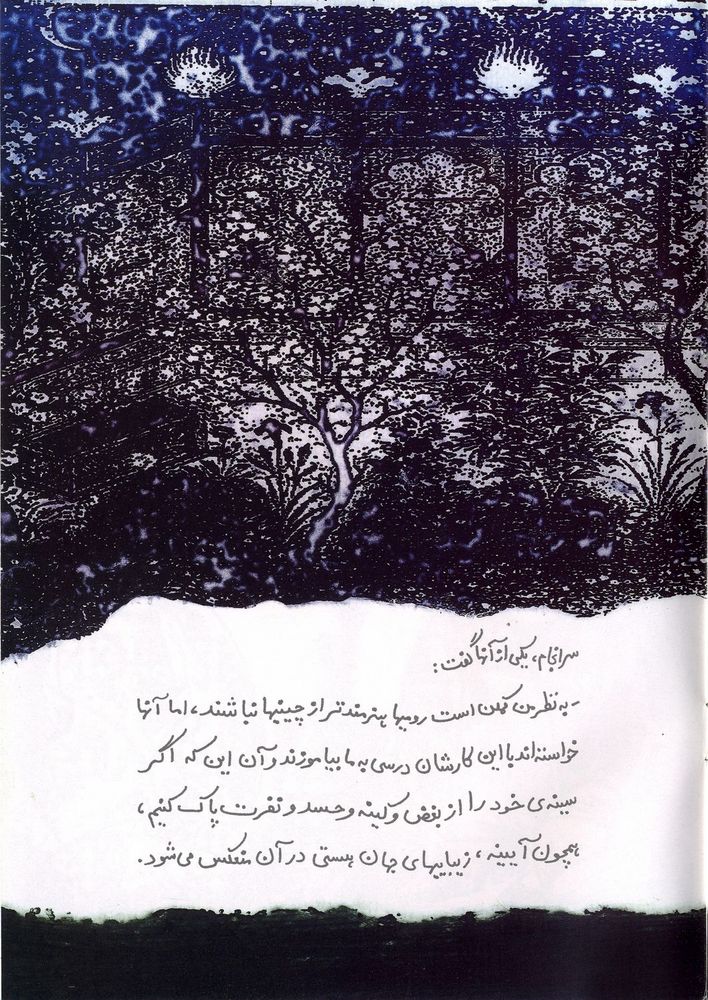 سرانجام، یکی از آنها گفت:
- به نظر من ممکن است رومیها هنرمندتر از چینیها نباشند، اما آنها
خواسته‌اند با این کارشان درسی به ما بیاموزند و آن این که اگر
سینه‌ی خود را از بغض و کینه و حسد و نفرت پاک کنیم،
همچون آیینه، زیباییهای جهان هستی در آن منعکس می‌شود.